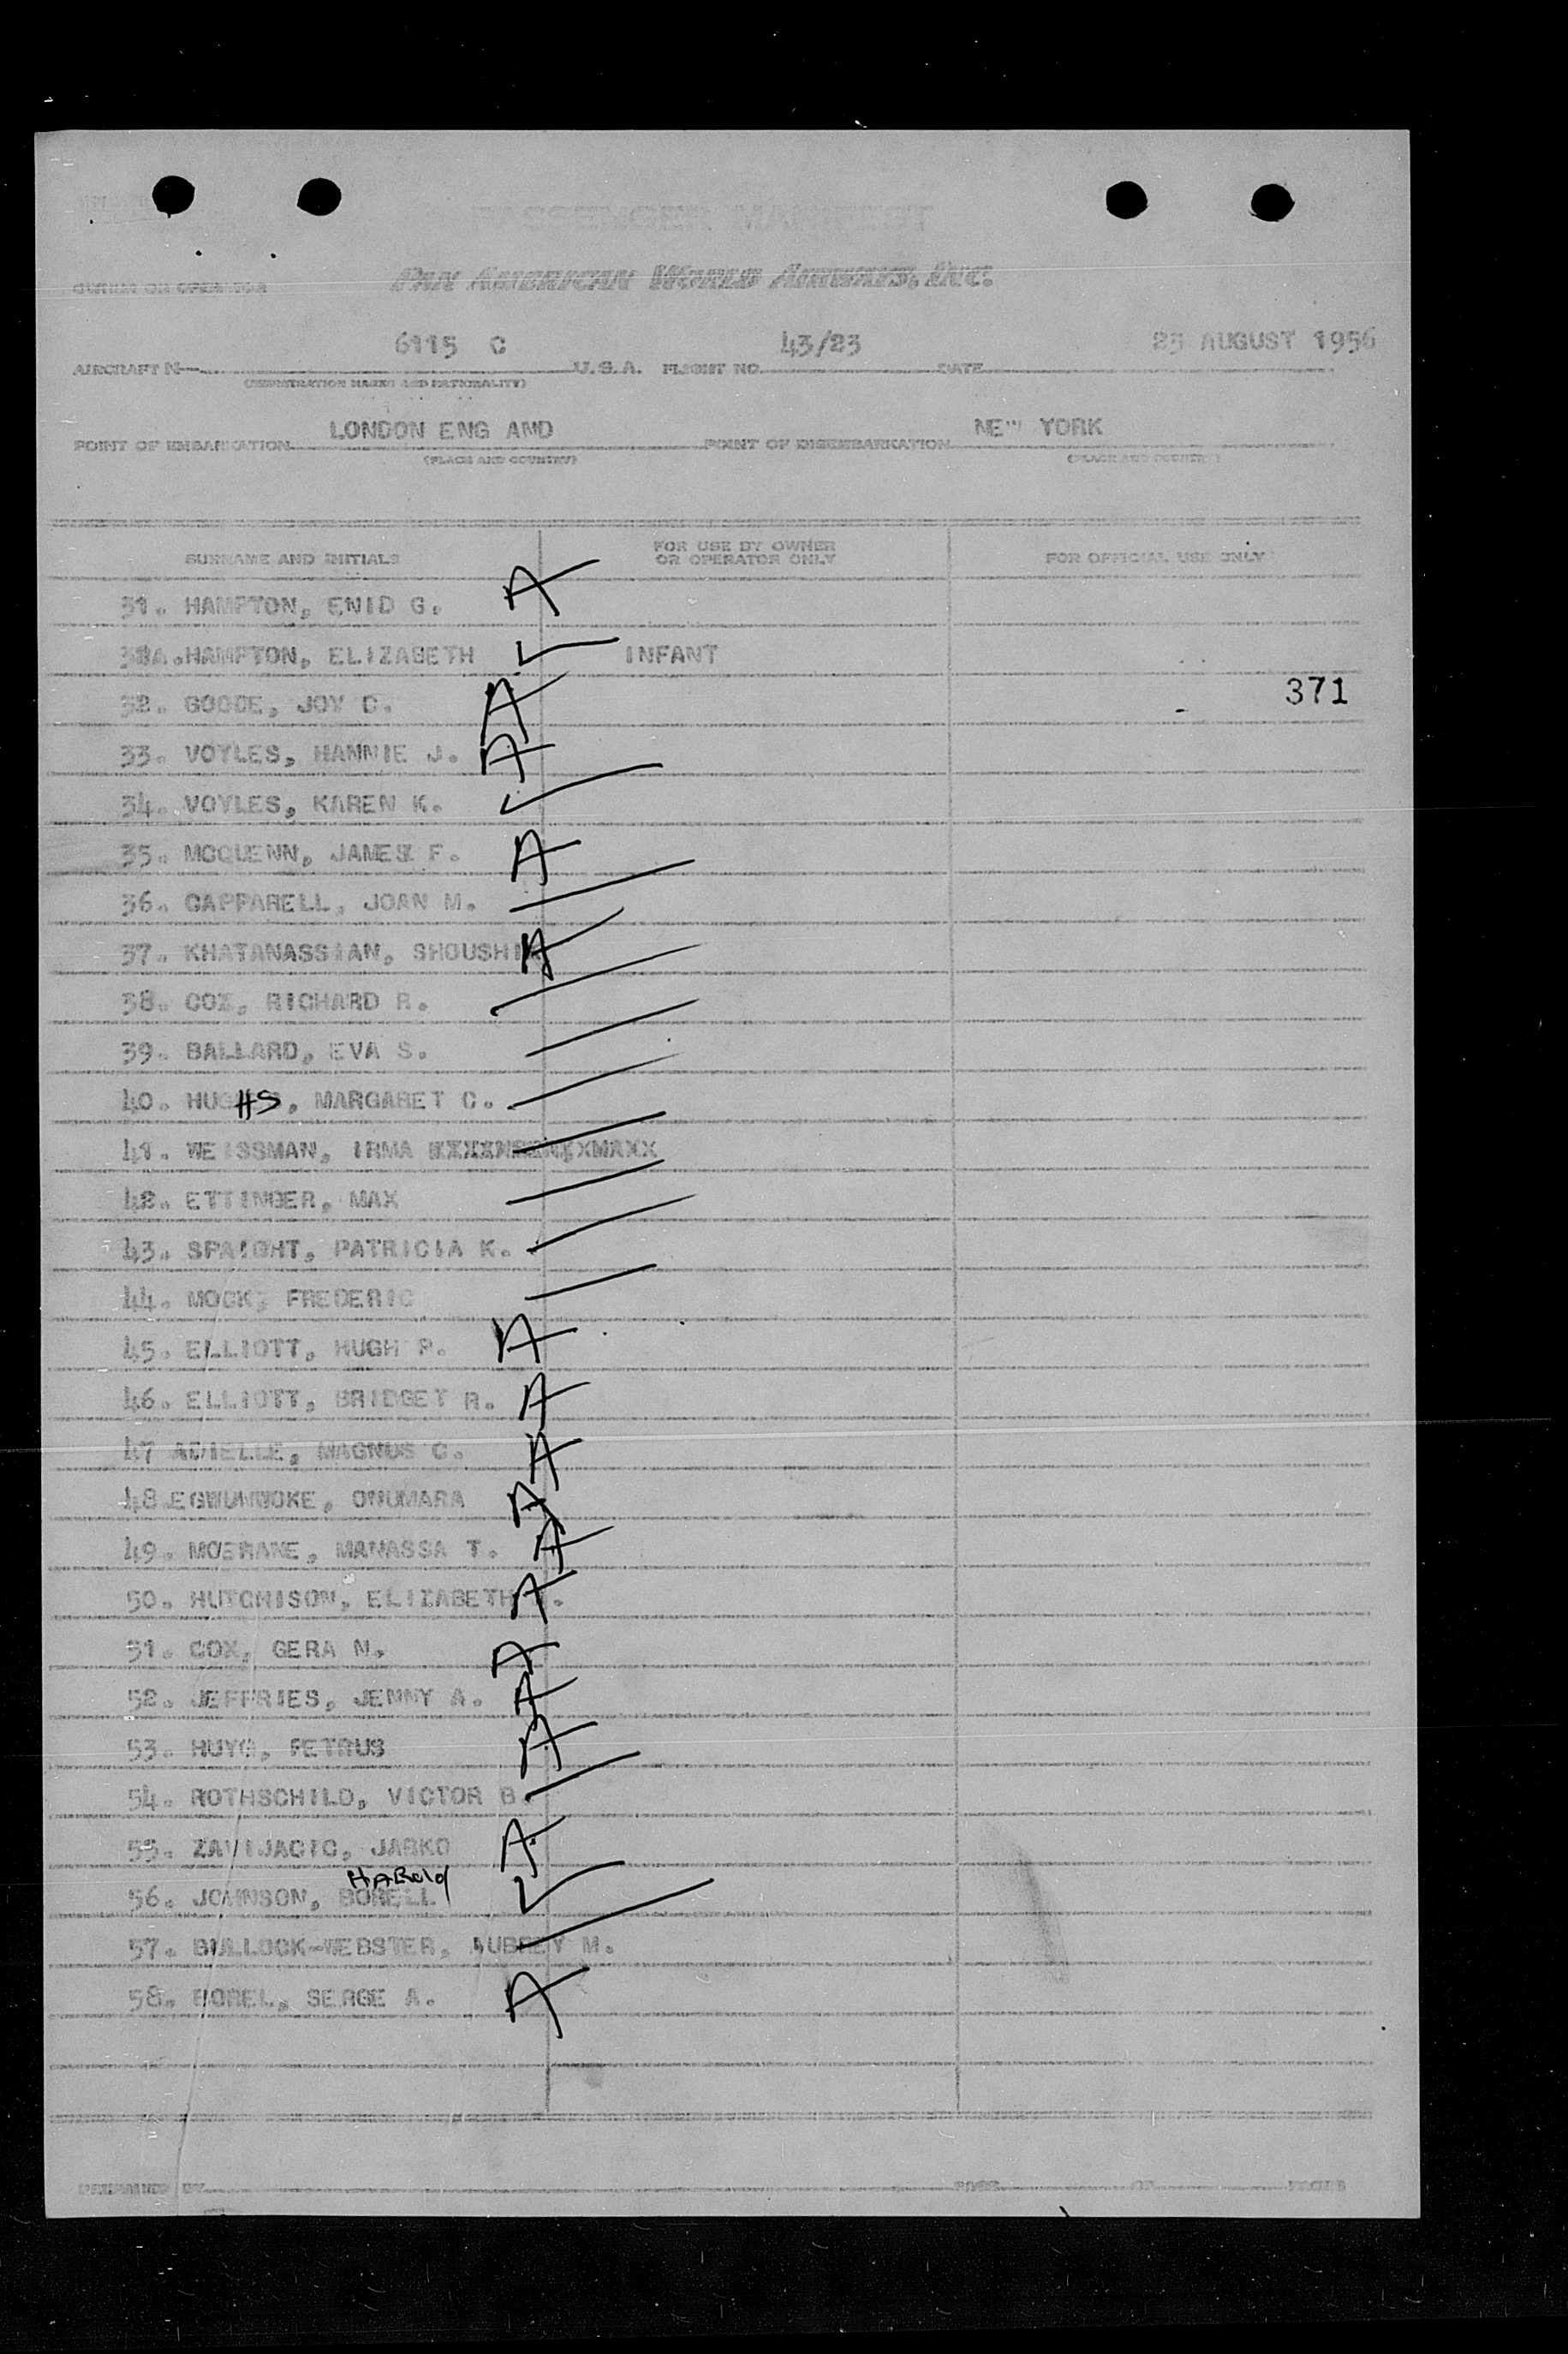 PASSENGER MANIFEST
OWNER OR OPERATOR PAN AMERICAN WORLD AIRWAYS, INC.
AIRCRAFT N— 6115 C U.S.A. FLIGHT NO. 43/23 DATE 23 AUGUST 1956
(REGISTRATION MARKS AND NATIONALITY)
POINT OF EMBARKATION LONDON ENG AND POINT OF DISEMBARKATION NEW YORK
(PLACE AND COUNTRY) (PLACE AND COUNTRY)
SURNAME AND INITIALS FOR USE BY OWNER OR OPERATOR ONLY FOR OFFICIAL USE ONLY
31. HAMPTON, ENID G. A
31A. HAMPTON, ELIZABETH INFANT
371
32. GOODE, JOY C. A
33. VOYLES, HANNIE J. A
34. VOYLES, KAREN K.
35. MCQUENN, JAMES F. A
36. CAPPARELL, JOAN M.
37. KHATANASSIAN, SHOUSHI A
38. COX, RICHARD R.
39. BALLARD, EVA S.
40. HUGHS, MARGARET C.
41. WEISSMAN, IRMA
42. ETTINGER, MAX
43. SPAIGHT, PATRICIA K.
44. MOCK, FREDERIC
45. ELLIOTT, HUGH P. A
46. ELLIOTT, BRIDGET R. A
47 ADIELLE, MAGNUS C. A
48 EGWUNWOKE, ONUMARA A
49. MOERANE, MANASSA T. A
50. HUTCHISON, ELIZABETH A
51. COX, GERA N. A
52. JEFFRIES, JENNY A. A
53. HUYG, PETRUS A
54. ROTHSCHILD, VICTOR B.
55. ZAVIJACIC, JARKO A
HARold
56. JOHNSON, BORELL
57. BULLOCK-WEBSTER, AUBREY M.
58. BOREL, SERGE A. A
PREPARED BY PAGE OF PAGES